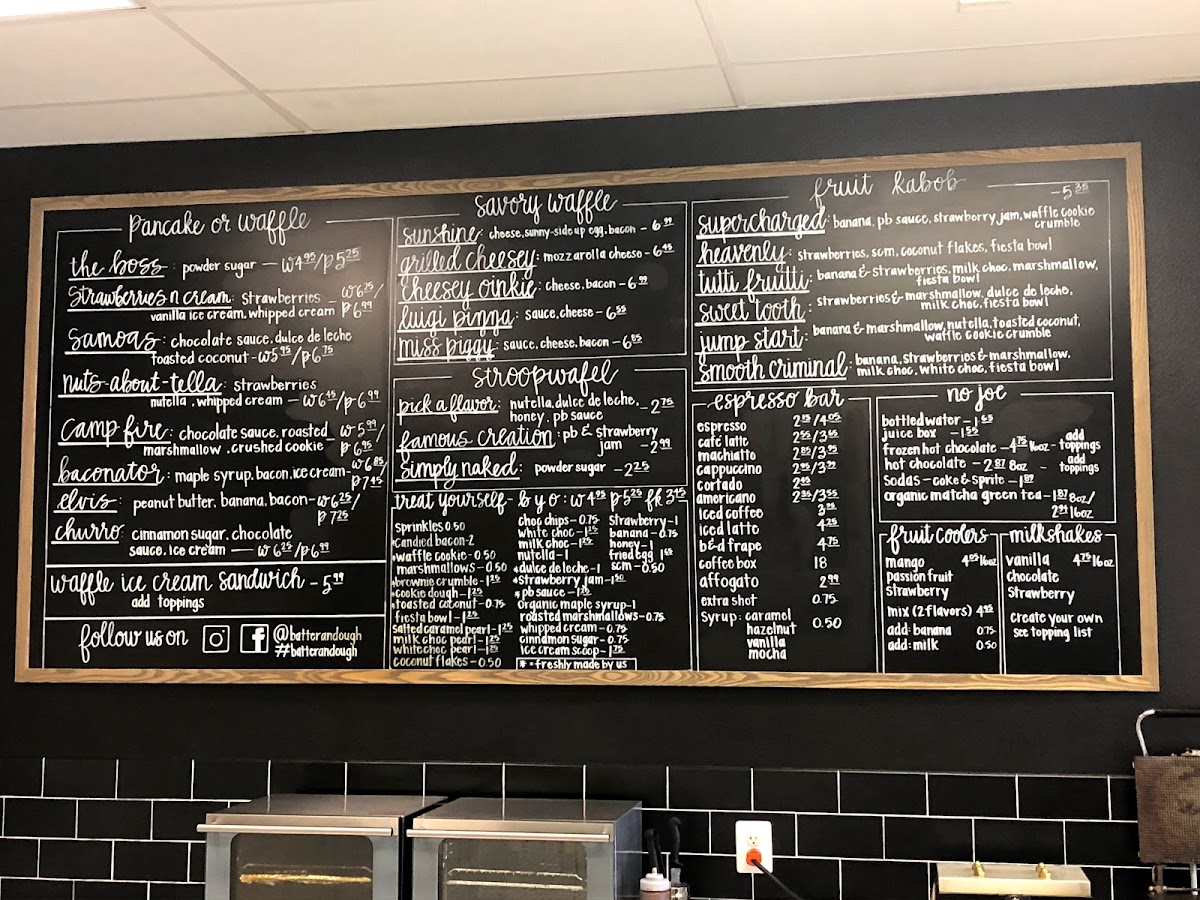 Pancake or waffle
the boss: powder sugar — w4.95/p5.25
strawberries n cream: strawberries – w6.25/
vanilla ice cream, whipped cream p6.99
samoas: chocolate sauce, dulce de leche
toasted coconut – w5.95/p6.75
nuts-about-tella: strawberries
nutella, whipped cream – w6.45/p6.99
camp fire: chocolate sauce, roasted – w5.99/
marshmallow, crushed cookie p6.95
baconator: maple syrup, bacon, ice cream – w6.85/
p7.45
elvis: peanut butter, banana, bacon – w6.25/
p7.25
churro: cinnamon sugar, chocolate
sauce, ice cream — w6.25/p6.99
waffle ice cream sandwich – 5.99
add toppings
follow us on
@batterandough
#batterandough
savory waffle
sunshine: cheese, sunny-side up egg, bacon – 6.99
grilled cheesey: mozzarella cheese – 6.45
cheesey oinkie: cheese, bacon – 6.99
luigi pizza: sauce, cheese – 6.55
miss piggy: sauce, cheese, bacon – 6.85
stroopwafel
pick a flavor: nutella, dulce de leche, – 2.75
honey, pb sauce
famous creation: pb & strawberry
jam – 2.99
simply naked: powder sugar – 2.25
treat yourself – b y o: w4.95 p5.25 fk 3.45
sprinkles 0.50
*candied bacon – 2
*waffle cookie – 0.50
marshmallows – 0.50
*brownie crumble – 1.25
*cookie dough – 1.25
*toasted coconut – 0.75
fiesta bowl – 1.25
salted caramel pearl – 1.25
milk choc pearl – 1.25
white choc pearl – 1.25
coconut flakes – 0.50
choc chips – 0.75
white choc – 1.25
milk choc – 1.25
nutella – 1
*dulce de leche – 1
*strawberry jam – 1.50
*pb sauce – 1.25
organic maple syrup – 1
roasted marshmallows – 0.75
whipped cream – 0.75
cinnamon sugar – 0.75
ice cream scoop – 1.75
* = freshly made by us
strawberry – 1
banana – 0.75
honey – 1
fried egg 1.65
scm – 0.50
fruit kabob
– 5.35
supercharged: banana, pb sauce, strawberry, jam, waffle cookie
crumble
heavenly: strawberries, scm, coconut flakes, fiesta bowl
tutti fruitti: banana & strawberries, milk choc, marshmallow,
fiesta bowl
sweet tooth: strawberries & marshmallow, dulce de leche,
milk choc, fiesta bowl
jump start: banana & marshmallow, nutella, toasted coconut,
waffle cookie crumble
smooth criminal: banana, strawberries & marshmallow,
milk choc, white choc, fiesta bowl
espresso bar
espresso
cafe latte
machiatto
cappuccino
cortado
americano
iced coffee
iced latte 4.25
b&d frape 4.75
coffee box 18
affogato 2.99
extra shot 0.75
syrup: caramel
hazelnut 0.50
vanilla
mocha
no joe
bottled water – 1.55
juice box – 1.55
frozen hot chocolate – 4.75 16oz – add toppings
hot chocolate – 2.87 8oz – add toppings
sodas – coke & sprite – 1.87
organic matcha green tea – 1.87 8oz/
2.91 16oz
fruit coolers
mango 4.95 16oz
passion fruit
strawberry
mix (2 flavors) 4.95
add: banana 0.75
add: milk 0.50
milkshakes
vanilla 4.75 16oz
chocolate
strawberry
create your own
see topping list